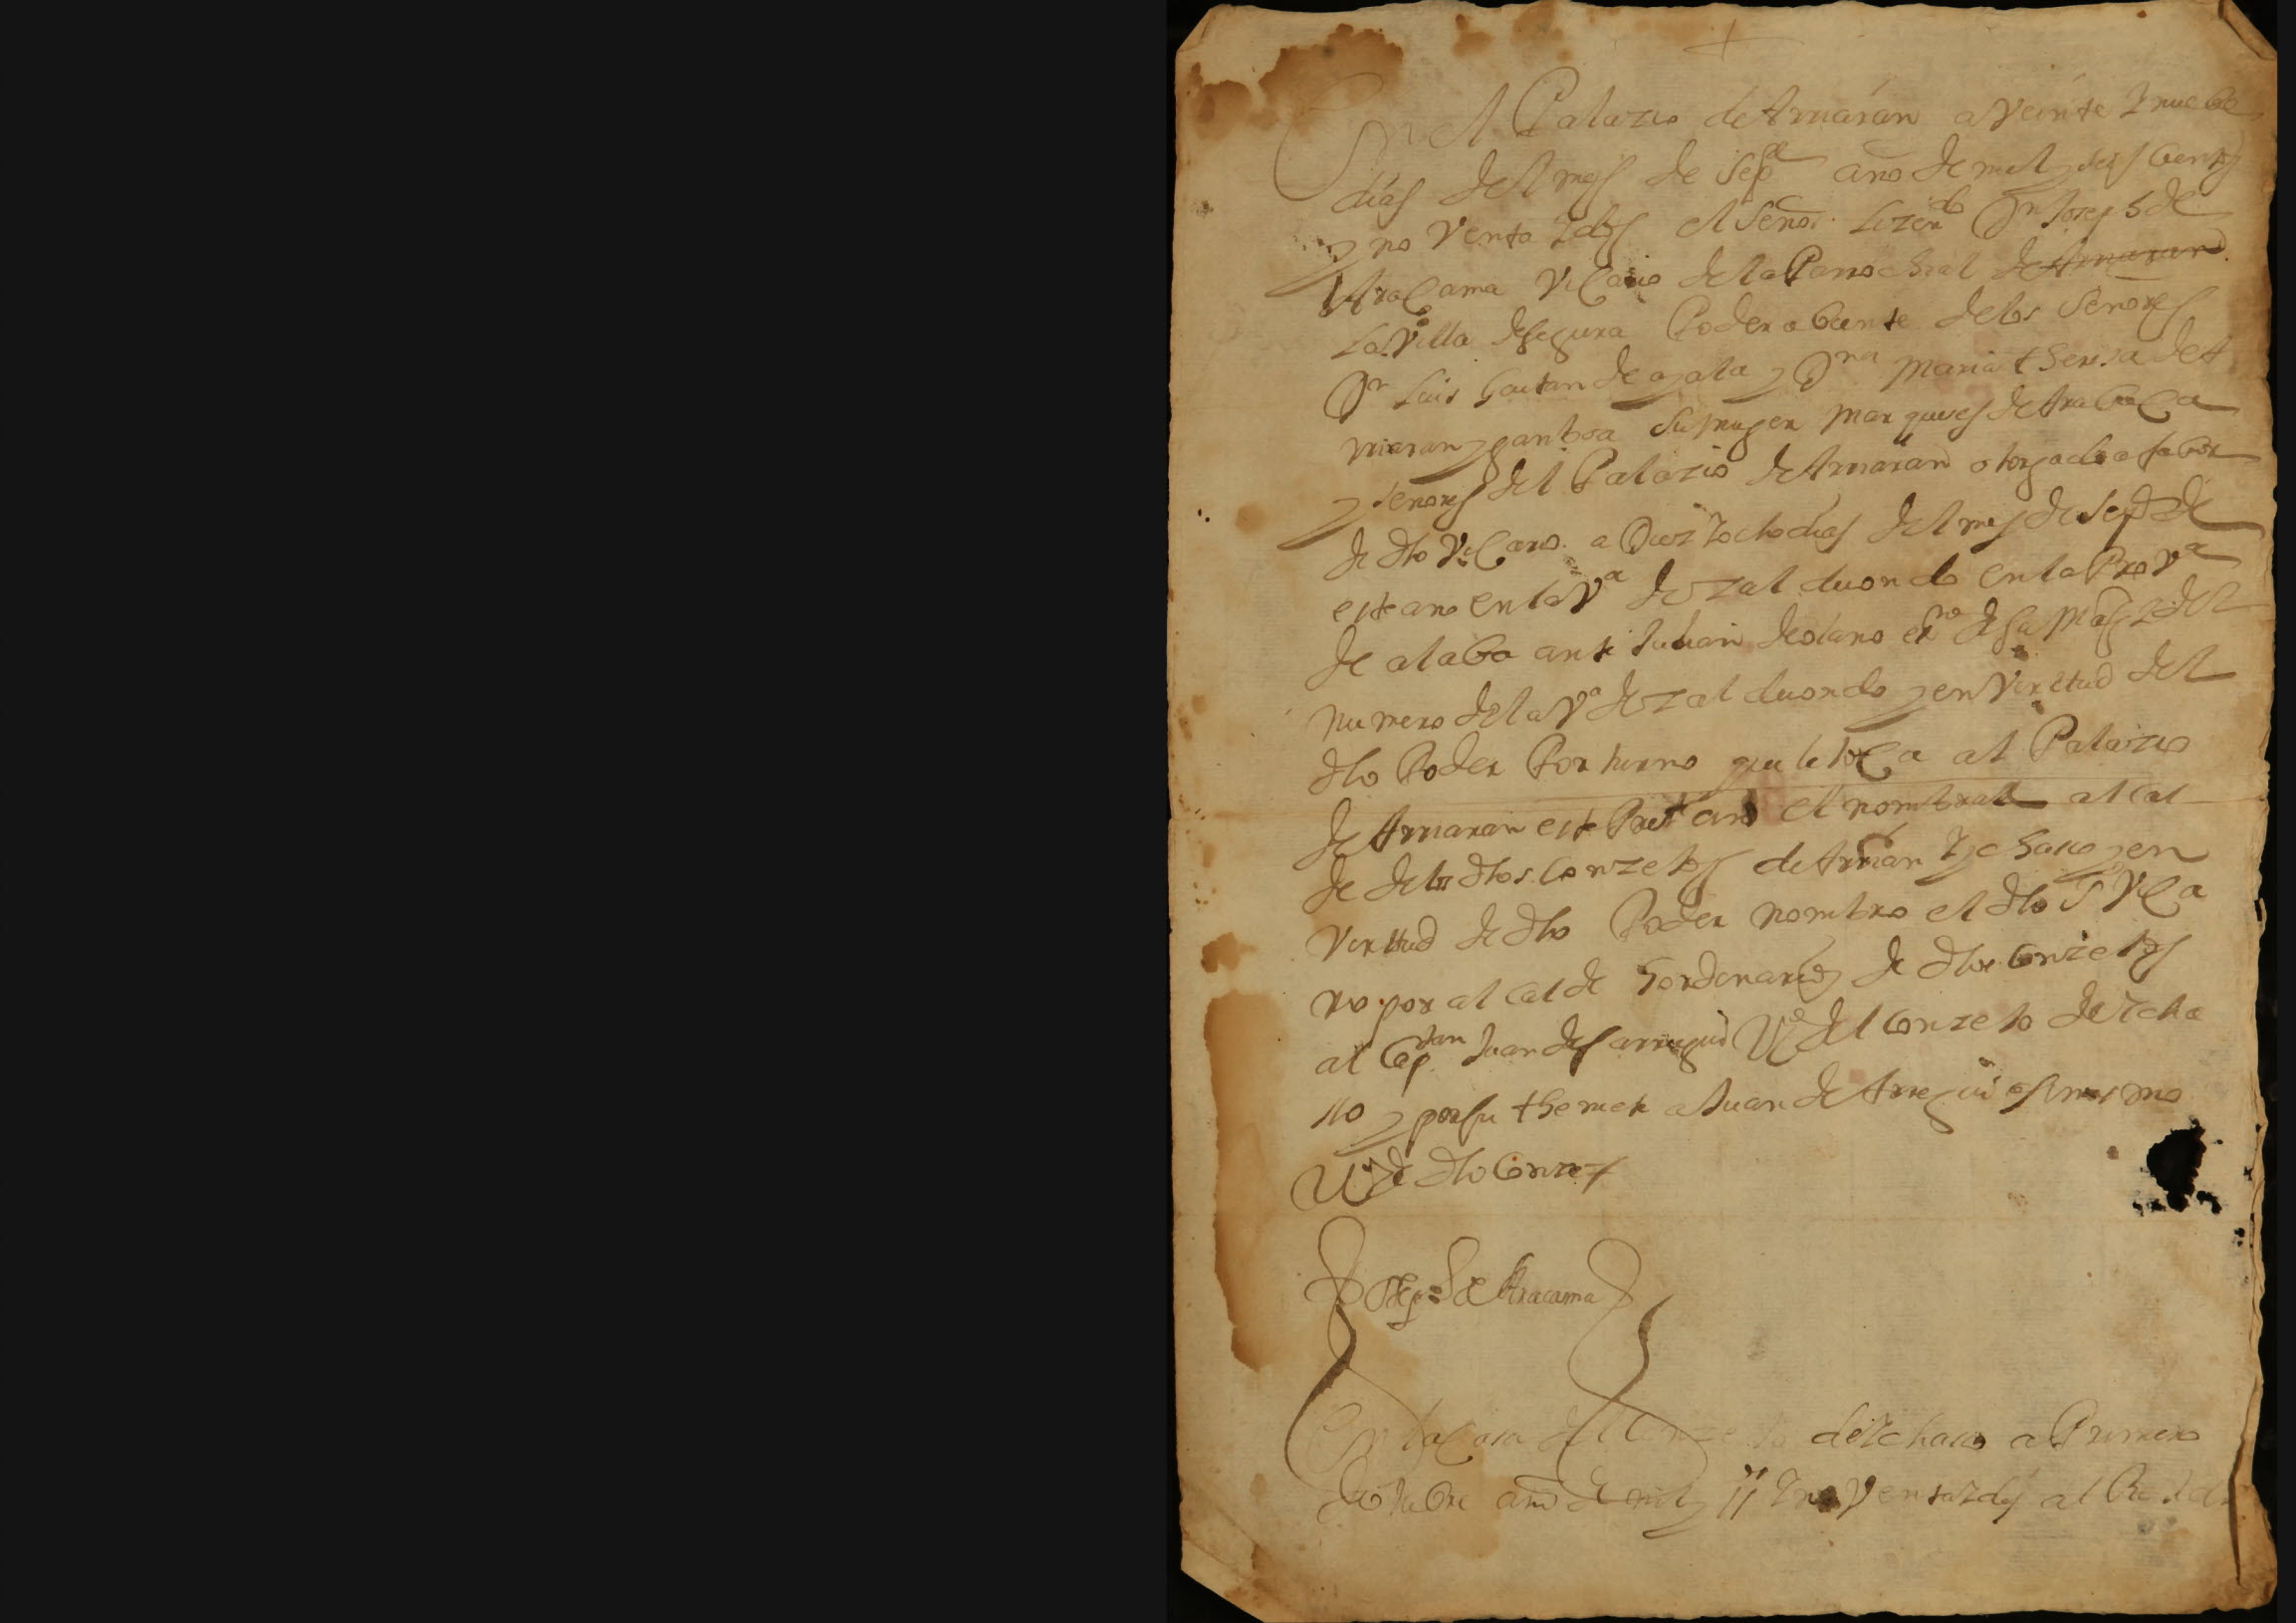 En el Palazio de Arriaran a Veinte y nuebe
dias del mes de sepe año de mil y seis cientos
y noventa y dos el señor Lizendo Dn Joseph de
Aracama Vicario de la Parrochial de Arriaran
La Villa de segura Poder abiente de los señores
Dn Luis Gaetan de ayala y Dna Maria theresa de A
rriaran y ganboa su muger Marqueses de Arabaca
y señores del Palazio de Arriaran otorgado a fabor
de dho Vicario a Diez y ocho dias del mes de sepe de
este año en la Va de zalduondo en la Prova
de alaba ante Julian de olano esno de su Magd y del
numero de la Va de zalduondo y en Virttud del
dho Poder Por turno que le toca al Palazio
de Arriaran este Preste año el nombrar alcal
de de los dhos conzejos de Arrian y ychasso y en
Virttud de dho Poder nombro el dho Sr Vica
rio por alcalde hordinario de dhos conzejos
al Captan Juan de sarriegui Vo del conzejo de ycha
sso y por su theniente a Juan de Arregui assimismo
Vo de dho conzejo
Joseph de Aracama
En la Casa del Conzejo de ychasso a Primero
de otubre año de mil y y noventa y dos al